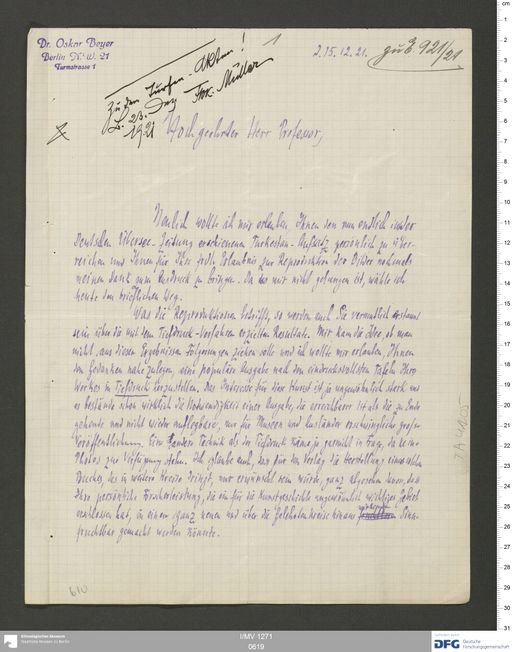 Dr. Oskar Beyer
Berlin N. W. 21
Turmstrasse 1
1
d. 15. 12. 21.
zu E. 921/21
Zu den Turfan-Akten!
1921
F.W.K. Müller
Hochgeehrter Herr Professor,
Neulich wollte ich mir erlauben, Ihnen den nun endlich in der
Deutschen Übersee-Zeitung erschienenen Turkestan-Aufsatz persönlich zu über-
reichen und Ihnen für Ihre frdl. Erlaubnis zur Reproduktion der Bilder nochmals
meinen Dank zum Ausdruck zu bringen. Da das mir nicht gelungen ist, wähle ich
heute den brieflichen Weg.
Was die Reproduktionen betrifft, so werden auch Sie vermutlich erstaunt
sein über die mit dem Tiefdruck-Verfahren erzielten Resultate. Mir kam die Idee, ob man
nicht aus diesen Ergebnissen Folgerungen ziehen solle und ich wollte mir erlauben Ihnen
den Gedanken nahezulegen, eine populäre Ausgabe nach den eindrucksvollsten Tafeln Ihres
Werkes in Tiefdruck herzustellen. Das Interesse für diese Kunst ist ja ungewöhnlich stark und
es bestände schon wirklich die Notwendigkeit einer Ausgabe, die erreichbarer ist als die zu Ende
gehende und nicht wieder auflegbare, nur für Museen und Ausländer erschwingliche große
Veröffentlichung. Eine andere Technik als der Tiefdruck käme ja garnicht in Frage, da keine
Photos zur Verfügung stehen. Ich glaube auch, dass für den Verlag die Herstellung eines solchen
Buches, das in weitere Kreise dringt, nur erwünscht sein würde, ganz abgesehen davon, dass
Ihre persönliche Forscherleistung, die ein für die Kunstgeschichte ungewöhnlich wichtiges Gebiet
erschlossen hat, in einem ganz neuen und über die Gelehrtenkreise hinaus
fruchtbar gemacht werden könnte.
TA 1405
610
Ethnologisches Museum
Staatliche Museen zu Berlin
I/MV 1271
0619
DFG
Deutsche
Forschungsgemeinschaft
cm
1
2
3
4
5
6
7
8
9
10
11
12
13
14
15
16
17
18
19
20
21
22
23
24
25
26
27
28
29
30
31